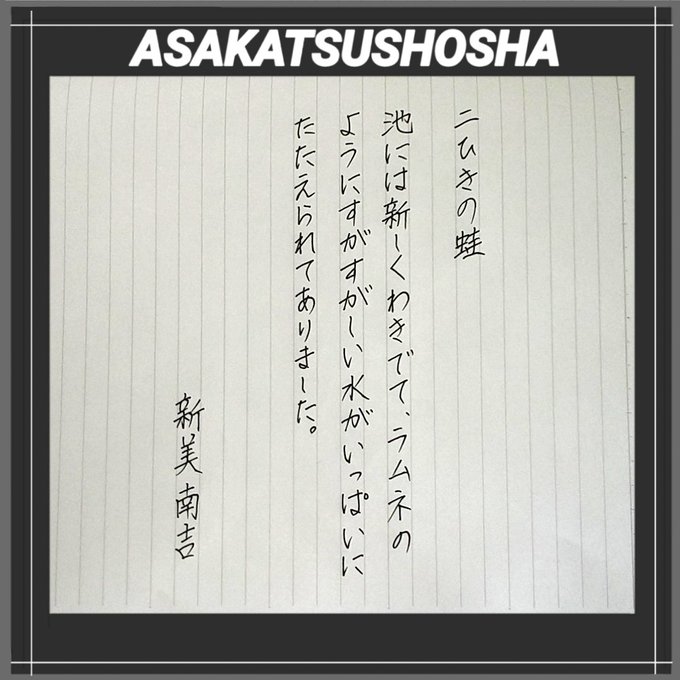 ASAKATSUSHOSHA
二ひきの蛙
池には新しくわきでて、ラムネの
ようにすがすがしい水がいっぱいに
たたえられてありました。
新美南吉